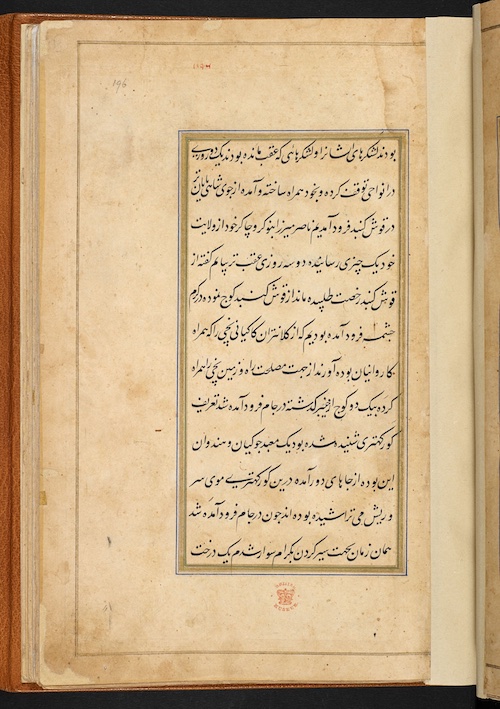 196
بودند لشکرهای ایشانرا و لشکرهایی که عقب مانده بودند یک دو روز
در انواحی توقف کرده و بخود همراه ساخته و آمده از جوی شاهی پایان تر
در قوش کنبد فرود آمدیم ناصر میرزا بنو کر و چاکر خود از ولایت
خود یک چیزی رسانیده دو سه روزی عقب تر بیایم گفته از
قوش کنبد رخصت طلبیده ماند از قوش کنبد کوچ نموده در کرم
چشمه فرود آمده بودیم که از کلانتران کاکیانی نجی را که همراه
کاروانیان بوده آوردند از جهت مصلحت راه و زمین نجی را همراه
کرده بیک دو کوچ از خیبر گذشته در جام فرود آمده شد تعریف
کور کهتری شنیده شده بود یک معبد جوکیان و هندوان
این بوده از جاهای دور آمده درین کور کهتری موی سر
و ریش می تراشیده بوده اند چون در جام فرود آمده شد
همان زمان بجهت سیر کردن بکرام سوار شدم یک درخت
BRITISH MUSEUM